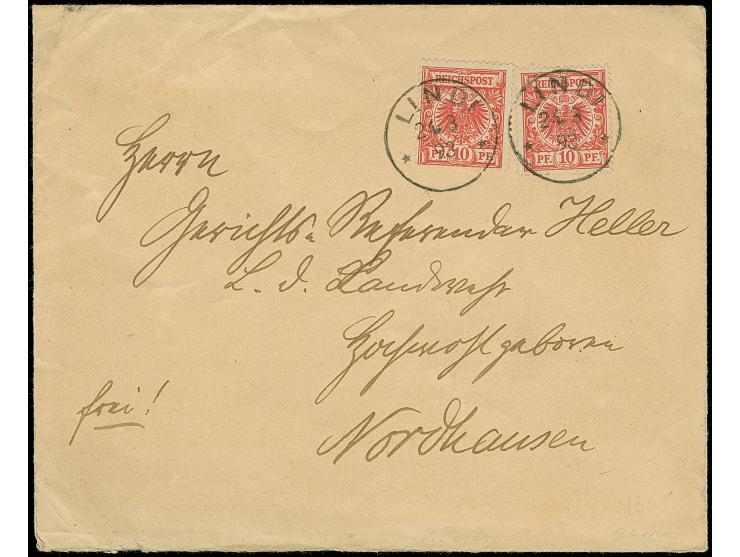 REICHSPOST
PF. 10 PF.
REICHSPOST
PF. 10 PF.
LINDI
24 3
93
LINDI
24 3
93
Herrn
Gerichts-Referendar Heller
L. d. Landwehr
Hochwohlgeboren
frei!
Nordhausen